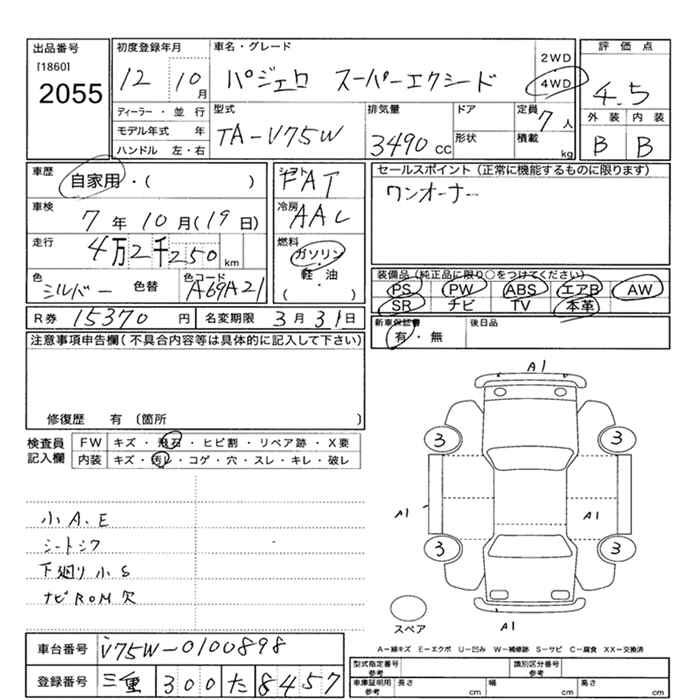 出品番号
[1860]
2055
初度登録年月
12 10月
車名・グレード
パジェロ スーパーエクシード
2WD
4WD
評価点
4.5
外装 内装
B B
ディーラー・並行
モデル年式 年
ハンドル 左・右
型式
TA-V75W
排気量
3490 CC
ドア
形状
定員
7人
積載
kg
車歴
自家用・( )
車検
7年10月(19日)
走行
4万2千250km
色
シルバー
色替
色コード
A69A21
シフト
FAT
冷房
AAC
燃料
ガソリン
軽・油
( )
セールスポイント(正常に機能するものに限ります)
ワンオーナー
装備品(純正品に限り○をつけてください)
PS PW ABS エアB AW
SR ナビ TV 本革
R券 15370円
名変期限 3月31日
新車保証書
有・無
後日品
注意事項申告欄(不具合内容等は具体的に記入して下さい)
修復歴 有 (箇所 )
検査員
記入欄
FW キズ・飛石・ヒビ割・リペア跡・X要
内装 キズ・汚レ・コゲ・穴・スレ・キレ・破レ
小A.E
シートシワ
下廻り小S
ナビROM欠
A1
3 3
A1 A1
3 3
スペア
A1
A−線キズ E−エクボ U−凹み W−補修跡 S−サビ C−腐食 XX−交換済
車台番号 V75W-0100898
登録番号 三重 300 た 8457
型式指定番号
参考
識別区分番号
車庫証明用
参考
長さ cm 幅 cm 高さ cm